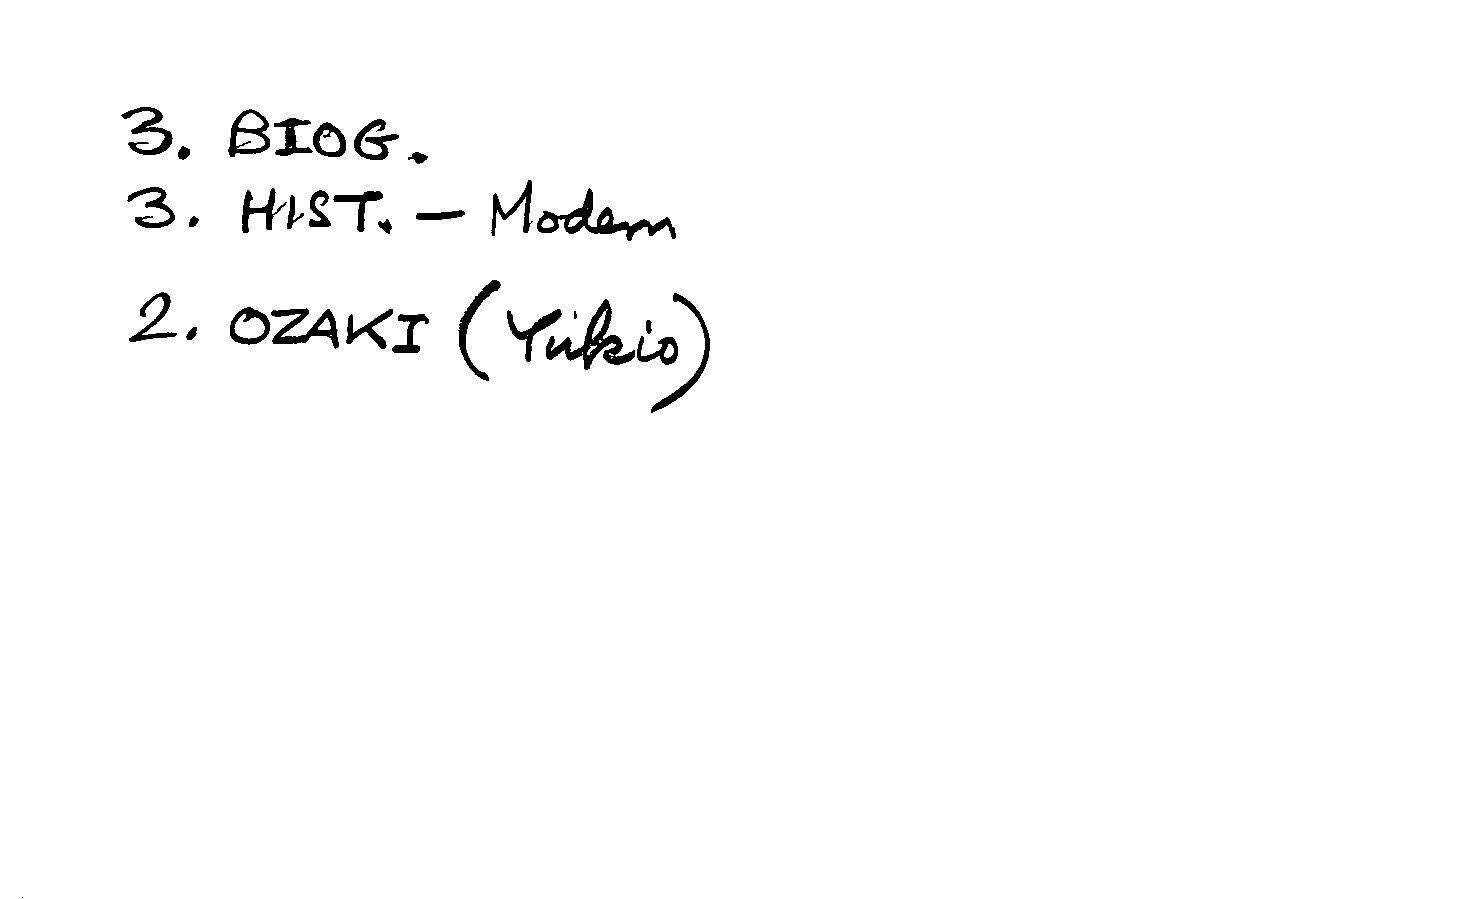 3. BIOG.
3. HIST. – Modern
2. OZAKI (Yukio)